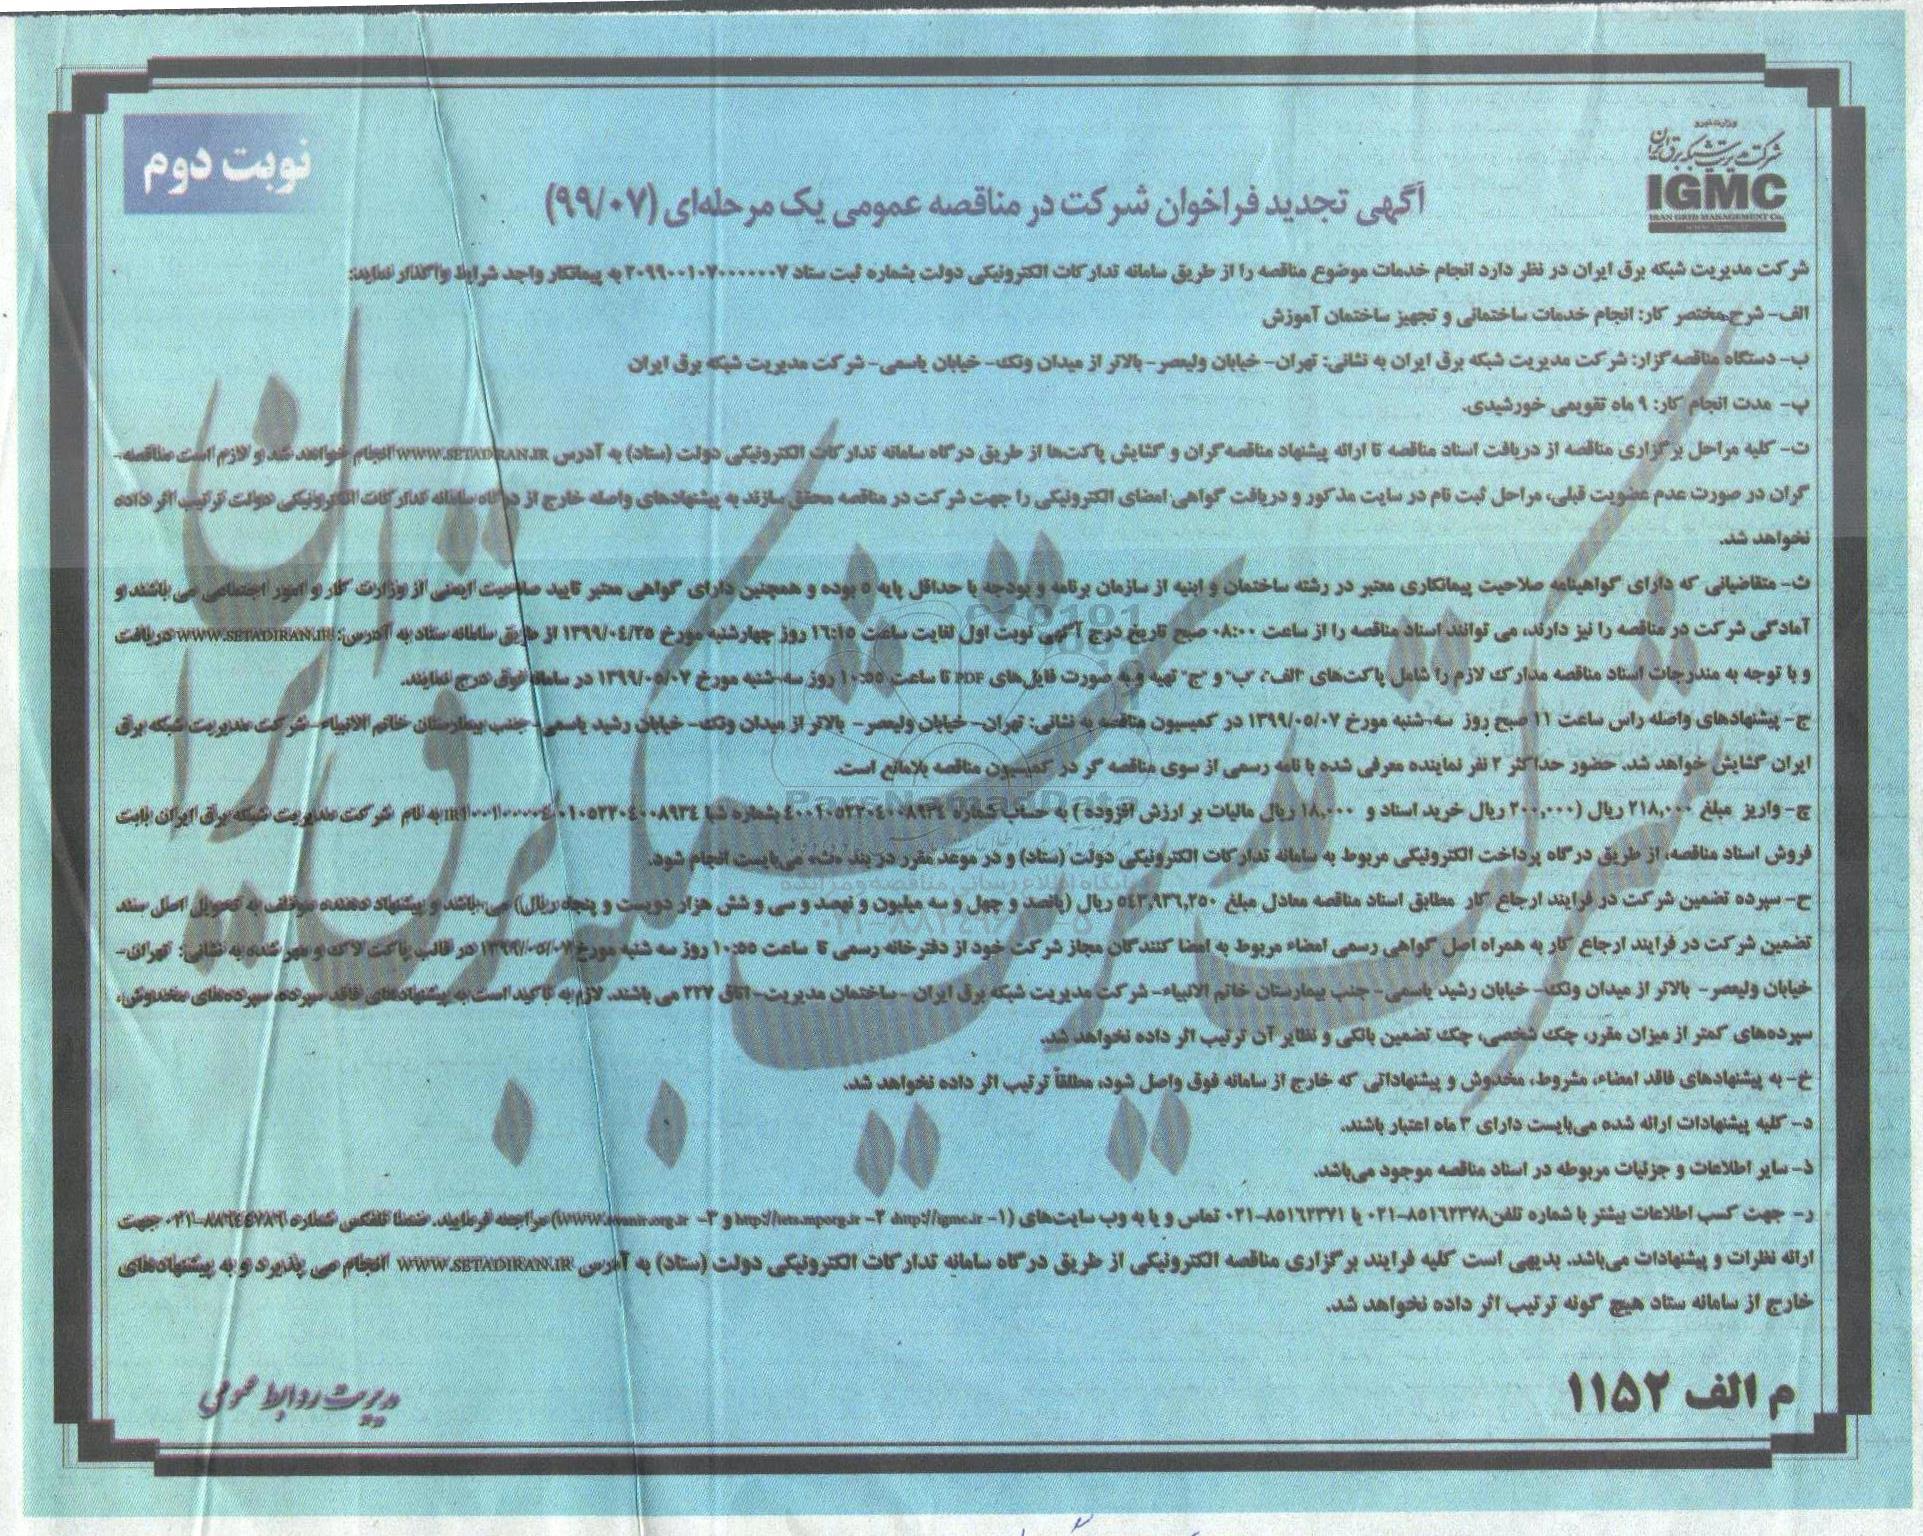 وزارت نیرو
شرکت مدیریت شبکه برق ایران
IGMC
IRAN GRID MANAGEMENT Co.
نوبت دوم
آگهی تجدید فراخوان شرکت در مناقصه عمومی یک مرحله‌ای (۹۹/۰۷)
شرکت مدیریت شبکه برق ایران در نظر دارد انجام خدمات موضوع مناقصه را از طریق سامانه تدارکات الکترونیکی دولت بشماره ثبت ستاد ۲۰۹۹۰۰۱۰۷۰۰۰۰۰۰۷ به پیمانکار واجد شرایط واگذار نماید:
الف- شرح مختصر کار: انجام خدمات ساختمانی و تجهیز ساختمان آموزش
ب- دستگاه مناقصه‌گزار: شرکت مدیریت شبکه برق ایران به نشانی: تهران- خیابان ولیعصر- بالاتر از میدان ونک- خیابان یاسمی- شرکت مدیریت شبکه برق ایران
پ- مدت انجام کار: ۹ ماه تقویمی خورشیدی.
ت- کلیه مراحل برگزاری مناقصه از دریافت اسناد مناقصه تا ارائه پیشنهاد مناقصه‌گران و گشایش پاکت‌ها از طریق درگاه سامانه تدارکات الکترونیکی دولت (ستاد) به آدرس WWW.SETADIRAN.IR انجام خواهد شد و لازم است مناقصه-
گران در صورت عدم عضویت قبلی، مراحل ثبت نام در سایت مذکور و دریافت گواهی امضای الکترونیکی را جهت شرکت در مناقصه محقق سازند به پیشنهادهای واصله خارج از درگاه سامانه تدارکات الکترونیکی دولت ترتیب اثر داده
نخواهد شد.
ث- متقاضیانی که دارای گواهینامه صلاحیت پیمانکاری معتبر در رشته ساختمان و ابنیه از سازمان برنامه و بودجه با حداقل پایه ۵ بوده و همچنین دارای گواهی معتبر تایید صلاحیت ایمنی از وزارت کار و امور اجتماعی می باشند و
آمادگی شرکت در مناقصه را نیز دارند، می توانند اسناد مناقصه را از ساعت ۰۸:۰۰ صبح تاریخ درج آگهی نوبت اول لغایت ساعت ۱۶:۱۵ روز چهارشنبه مورخ ۱۳۹۹/۰۴/۲۵ از طریق سامانه ستاد به آدرس: WWW.SETADIRAN.IR دریافت
و با توجه به مندرجات اسناد مناقصه مدارک لازم را شامل پاکت‌های "الف"، "ب" و "ج" تهیه و به صورت فایل‌های PDF تا ساعت ۱۰:۵۵ روز سه‌شنبه مورخ ۱۳۹۹/۰۵/۰۷ در سامانه فوق درج نمایند.
ج- پیشنهادهای واصله راس ساعت ۱۱ صبح روز سه‌شنبه مورخ ۱۳۹۹/۰۵/۰۷ در کمیسیون مناقصه به نشانی: تهران- خیابان ولیعصر- بالاتر از میدان ونک- خیابان رشید یاسمی- جنب بیمارستان خاتم الانبیاء- شرکت مدیریت شبکه برق
ایران گشایش خواهد شد. حضور حداکثر ۲ نفر نماینده معرفی شده با نامه رسمی از سوی مناقصه گر در کمیسیون مناقصه بلامانع است.
چ- واریز مبلغ ۲۱۸,۰۰۰ ریال (۲۰۰,۰۰۰ ریال خرید اسناد و ۱۸,۰۰۰ ریال مالیات بر ارزش افزوده) به حساب شماره ۴۰۰۱۰۵۲۲۰۴۰۰۸۹۳۴ بشماره شبا به نام شرکت مدیریت شبکه برق ایران بابت
فروش اسناد مناقصه، از طریق درگاه پرداخت الکترونیکی مربوط به سامانه تدارکات الکترونیکی دولت (ستاد) و در موعد مقرر در بند «ث» می‌بایست انجام شود.
ح- سپرده تضمین شرکت در فرایند ارجاع کار مطابق اسناد مناقصه معادل مبلغ ۵۴۳,۹۳۶,۲۵۰ ریال (پانصد و چهل و سه میلیون و نهصد و سی و شش هزار دویست و پنجاه ریال) می‌باشد و پیشنهاد دهنده موظف به تحویل اصل سند
تضمین شرکت در فرایند ارجاع کار به همراه اصل گواهی رسمی امضاء مربوط به امضا کنندگان مجاز شرکت خود از دفترخانه رسمی تا ساعت ۱۰:۵۵ روز سه شنبه مورخ ۱۳۹۹/۰۵/۰۷ در قالب پاکت لاک و مهر شده به نشانی: تهران-
خیابان ولیعصر- بالاتر از میدان ونک- خیابان رشید یاسمی- جنب بیمارستان خاتم الانبیاء- شرکت مدیریت شبکه برق ایران -ساختمان مدیریت- اتاق ۲۲۷ می باشند. لازم به تاکید است به پیشنهادهای فاقد سپرده، سپرده‌های مخدوش،
سپرده‌های کمتر از میزان مقرر، چک شخصی، چک تضمین بانکی و نظایر آن ترتیب اثر داده نخواهد شد.
خ- به پیشنهادهای فاقد امضاء، مشروط، مخدوش و پیشنهاداتی که خارج از سامانه فوق واصل شود، مطلقاً ترتیب اثر داده نخواهد شد.
د- کلیه پیشنهادات ارائه شده می‌بایست دارای ۳ ماه اعتبار باشند.
ذ- سایر اطلاعات و جزئیات مربوطه در اسناد مناقصه موجود می‌باشد.
ر- جهت کسب اطلاعات بیشتر با شماره تلفن ۸۵۱۶۲۳۷۸-۰۲۱ یا ۸۵۱۶۲۳۷۱-۰۲۱ تماس و یا به وب سایت‌های (۱- http://igmc.ir، ۲- http://iets.mporg.ir و ۳- WWW.tavanir.org.ir) مراجعه فرمایید. ضمنا تلفکس شماره ۸۸۶۴۴۷۸۶-۰۲۱ جهت
ارائه نظرات و پیشنهادات می‌باشد. بدیهی است کلیه فرایند برگزاری مناقصه الکترونیکی از طریق درگاه سامانه تدارکات الکترونیکی دولت (ستاد) به آدرس WWW.SETADIRAN.IR انجام می پذیرد و به پیشنهادهای
خارج از سامانه ستاد هیچ گونه ترتیب اثر داده نخواهد شد.
م الف ۱۱۵۲
مدیریت روابط عمومی
ParsNamadData
پایگاه اطلاع رسانی مناقصه و مزایده